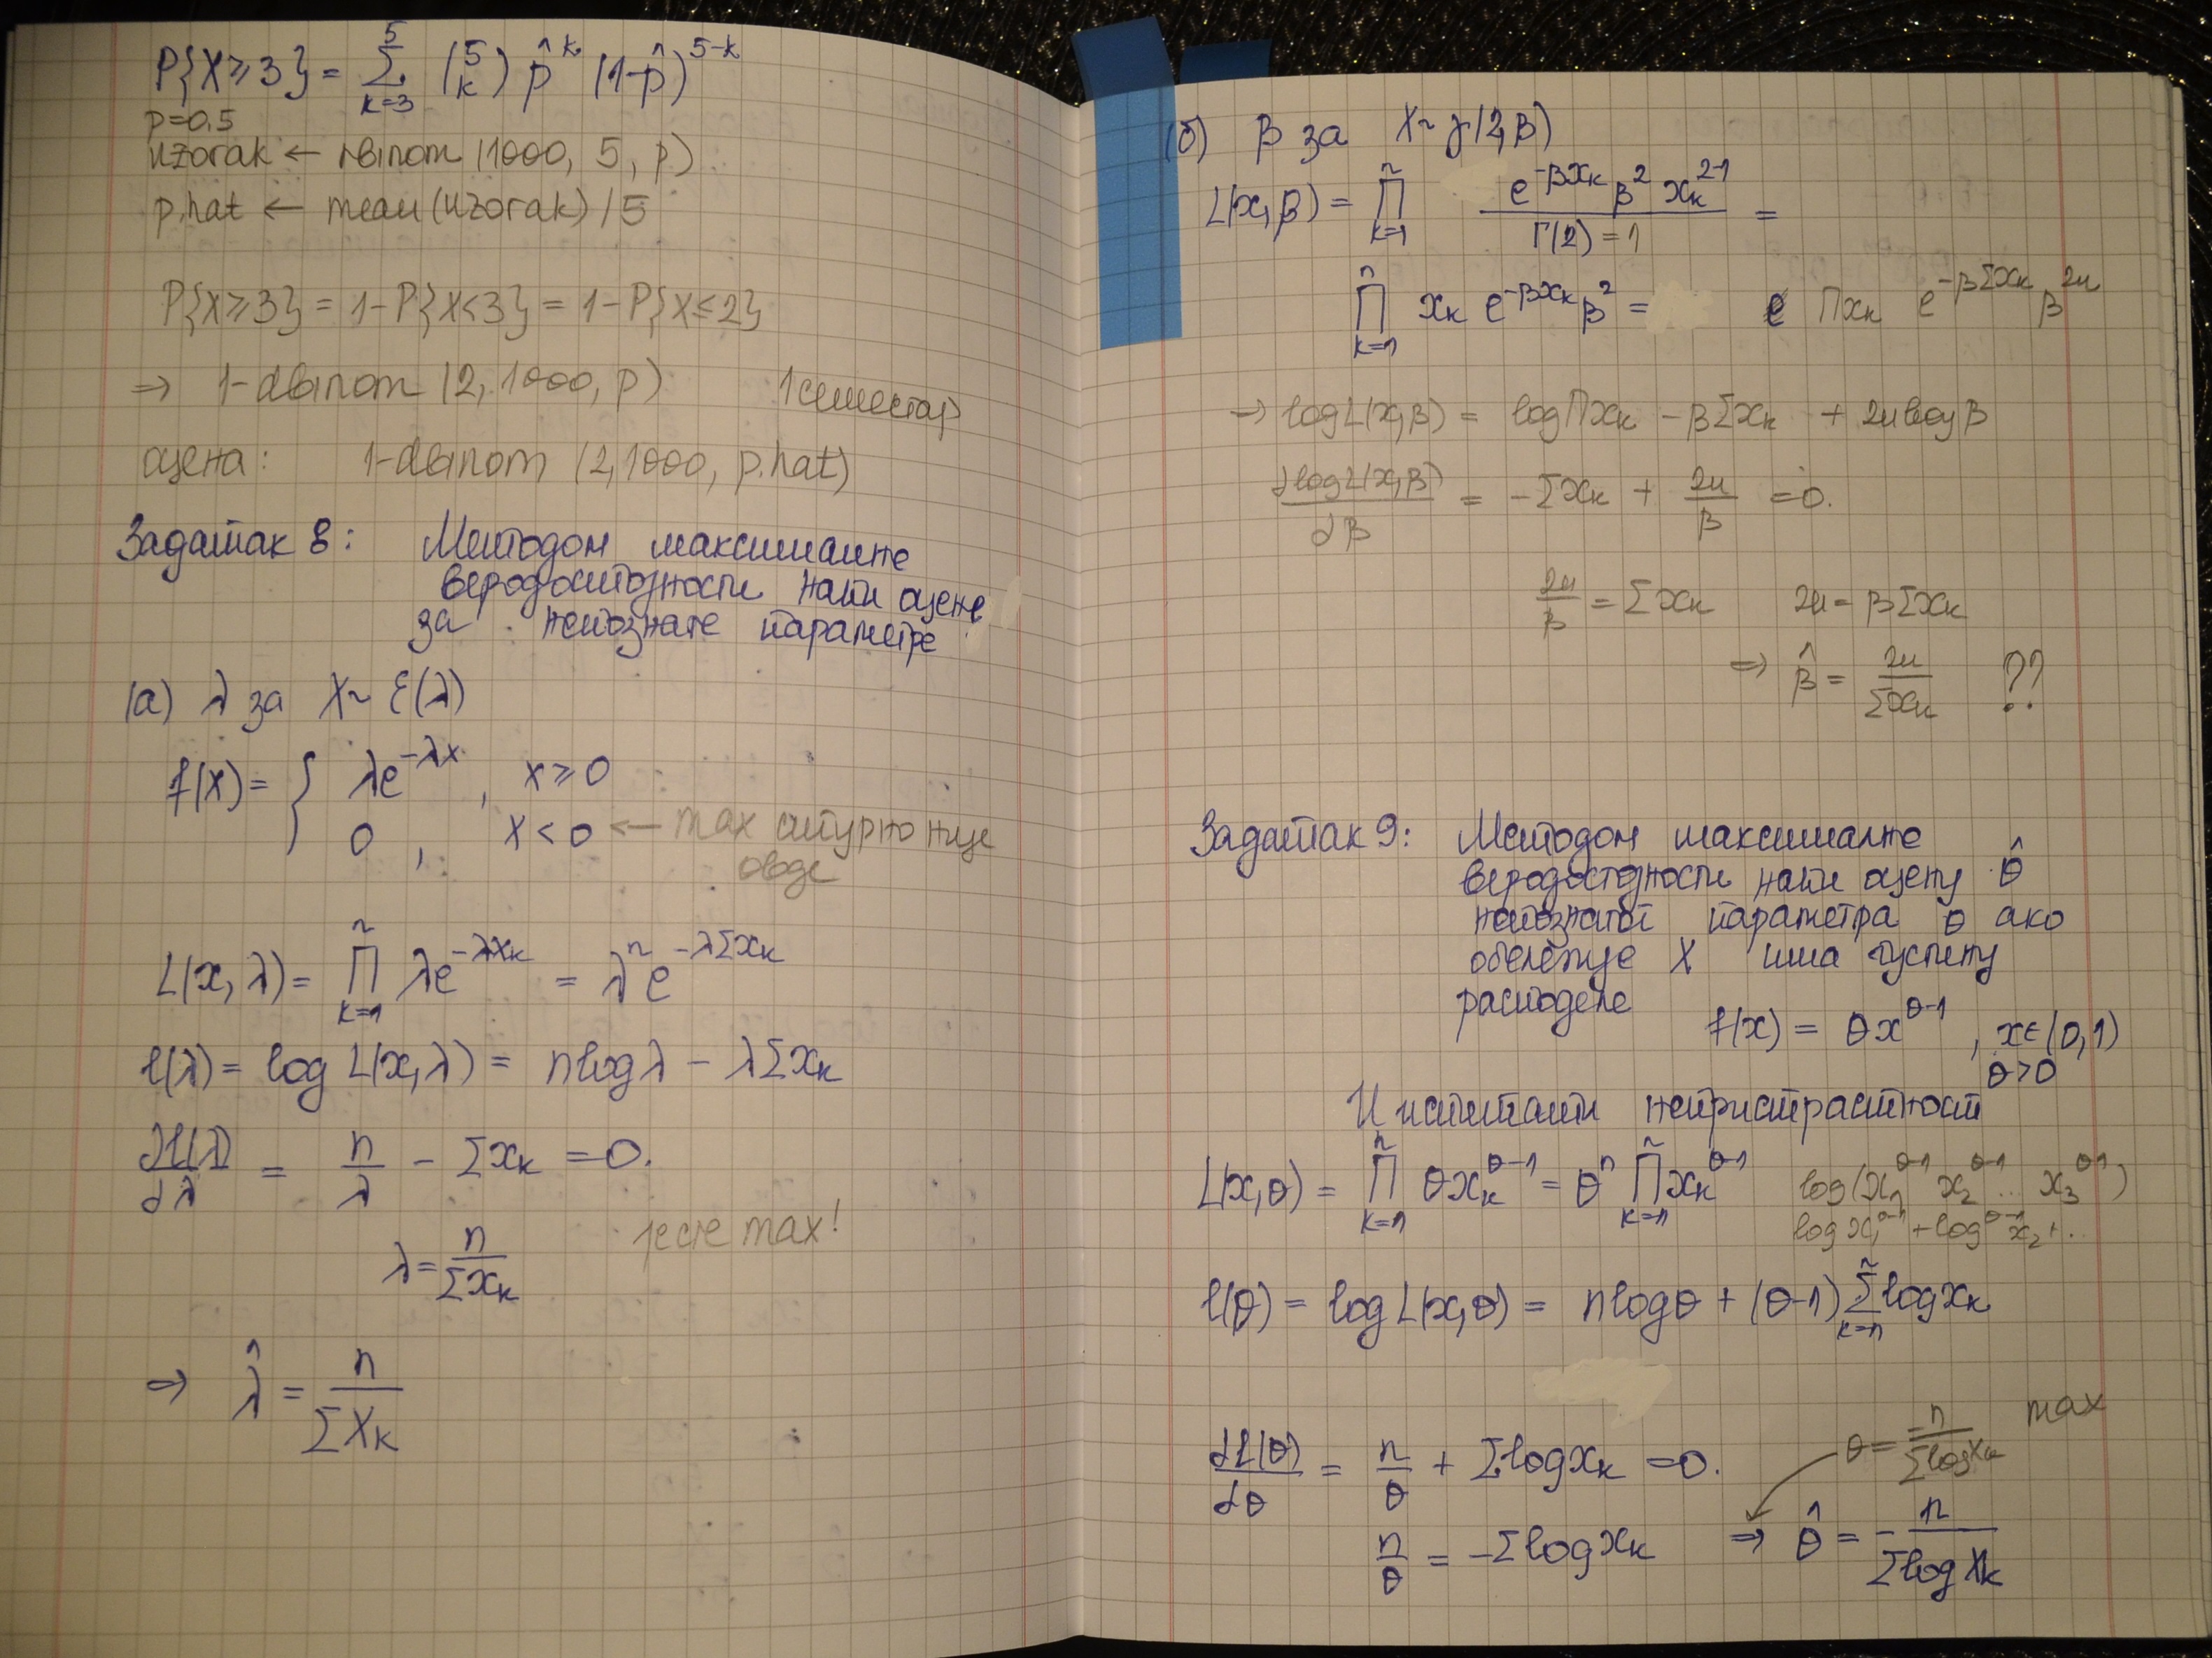 P{X≥3} = Σ_{k=3}^{5} (5 k) p̂^k (1-p̂)^{5-k}
p=0.5
uzorak ← rbinom (1000, 5, p)
p.hat ← mean(uzorak) / 5
P{X≥3} = 1-P{X<3} = 1-P{X≤2}
⇒ 1-dbinom (2, 1000, p) 1 семестар
оцена: 1-dbinom (2, 1000, p.hat)
Задатак 8: Методом максималне
веродостојности наћи оцене
за непознате параметре
(а) λ за X~ Ɛ(λ)
f(x) = { λe^{-λx}, x≥0
0, x<0 ← max сигурно није
овде
L(x,λ) = ∏_{k=1}^{n} λe^{-λx_k} = λ^n e^{-λΣx_k}
l(λ) = log L(x,λ) = n log λ - λΣx_k
∂l(λ)/∂λ = n/λ - Σx_k = 0.
λ = n/Σx_k јесте max!
⇒ λ̂ = n/ΣX_k
(б) β за X~ γ(2,β)
L(x,β) = ∏_{k=1}^{n} e^{-βx_k} β^2 x_k^{2-1} / Γ(2) = 1 =
∏_{k=1}^{n} x_k e^{-βx_k} β^2 = ∏x_k e^{-βΣx_k} β^{2n}
→ log L(x,β) = log∏x_k - βΣx_k + 2n log β
∂log L(x,β)/∂β = -Σx_k + 2n/β = 0.
2n/β = Σx_k 2n = βΣx_k
⇒ β̂ = 2n/Σx_k ??
Задатак 9: Методом максималне
веродостојности наћи оцену θ̂
непознатог параметра θ ако
обележје X има густину
расподеле
f(x) = θx^{θ-1}, x∈(0,1)
θ>0
И испитати непристрасност
L(x,θ) = ∏_{k=1}^{n} θx_k^{θ-1} = θ^n ∏_{k=1}^{n} x_k^{θ-1} log(x_1^{θ-1} x_2^{θ-1} ... x_3^{θ-1})
log x_1^{θ-1} + log^{θ-1} x_2 + ..
l(θ) = log L(x,θ) = n log θ + (θ-1) Σ_{k=1}^{n} log x_k
∂l(θ)/∂θ = n/θ + Σlog x_k = 0. θ = -n/Σlog x_k max
n/θ = -Σlog x_k ⇒ θ̂ = -n/Σlog X_k